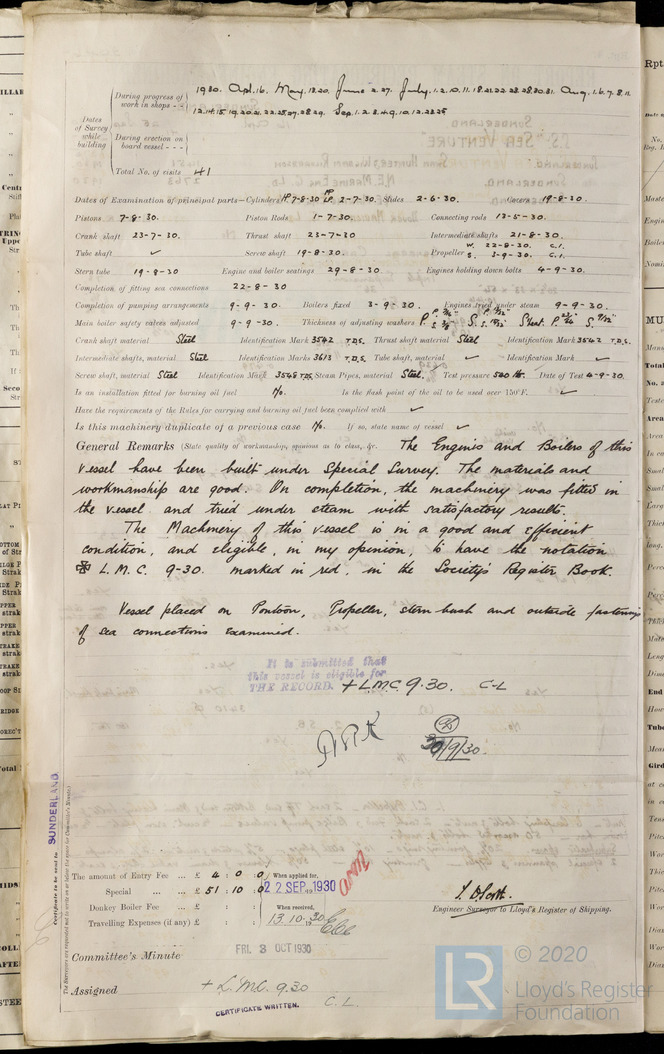 During progress of work in shops - - 1930. Apl. 16. May. 13. 20. June 2. 27. July. 1. 2. 10. 11. 18. 21. 22. 23. 28. 30. 31. Aug. 1. 6. 7. 8. 11.
12. 14. 15. 19. 20. 21. 22. 25. 27. 28. 29. Sep. 1. 2. 3. 4. 9. 10. 12. 23. 25
Dates of Survey while building
During erection on board vessel - - -
Total No. of visits 41
Dates of Examination of principal parts—Cylinders HP. 7-8-30 LP. 2-7-30. Slides 2-6-30. Covers 19-8-30.
Pistons 7-8-30. Piston Rods 1-7-30. Connecting rods 13-5-30.
Crank shaft 23-7-30. Thrust shaft 23-7-30 Intermediate shafts 21-8-30.
Tube shaft ✓ Screw shaft 19-8-30. Propeller W. 22-8-30. C.I. S. 3-9-30. C.I.
Stern tube 19-8-30 Engine and boiler seatings 29-8-30. Engines holding down bolts 4-9-30.
Completion of fitting sea connections 22-8-30
Completion of pumping arrangements 9-9-30. Boilers fixed 3-9-30. Engines tried under steam 9-9-30.
Main boiler safety valves adjusted 9-9-30. Thickness of adjusting washers
Crank shaft material Steel Identification Mark 3542 T.D.S. Thrust shaft material Steel Identification Mark 3542 T.D.S.
Intermediate shafts, material Steel Identification Marks 3613 T.D.S. Tube shaft, material ✓ Identification Mark ✓
Screw shaft, material Steel Identification Mark 3548 T.D.S. Steam Pipes, material Steel. Test pressure 520 lbs. Date of Test 4-9-30.
Is an installation fitted for burning oil fuel No. Is the flash point of the oil to be used over 150°F. ✓
Have the requirements of the Rules for carrying and burning oil fuel been complied with ✓
Is this machinery duplicate of a previous case No. If so, state name of vessel ✓
General Remarks (State quality of workmanship, opinions as to class, &c. The Engines and Boilers of this
vessel have been built under Special Survey. The materials and
workmanship are good. On completion, the machinery was fitted in
the vessel and tried under steam with satisfactory results.
The Machinery of this vessel is in a good and efficient
condition, and eligible, in my opinion, to have the notation
✠ L.M.C. 9-30. marked in red, in the Society's Register Book.
Vessel placed on Pontoon, Propeller, stern bush and outside fastenings
of sea connections examined.
It is submitted that
this vessel is eligible for
THE RECORD. + L.M.C. 9.30. C-L
30/9/30
Certificate to be sent to SUNDERLAND.
The amount of Entry Fee ... £ 4 : 0 : 0 When applied for,
Special ... £ 51 : 10 : 0 22 SEP 1930
Donkey Boiler Fee ... £ : : When received,
Travelling Expenses (if any) £ : : 13.10.30
Engineer Surveyor to Lloyd's Register of Shipping.
Committee's Minute FRI. 3 OCT 1930
Assigned + L.M.C. 9.30
CERTIFICATE WRITTEN. C.L.
© 2020
LR Lloyd's Register
Foundation